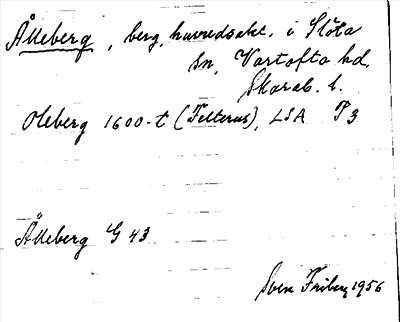 Ålleberg, berg, huvudsakl. i Slöta
sn, Vartofta hd,
Skarab. l.
Olleberg 1600-t (Felterus), LSA P3
Ålleberg G 43
Sven Friberg 1956